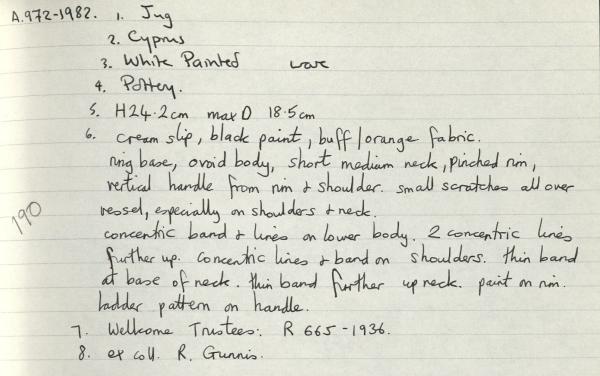 A.972-1982. 1. Jug
2. Cyprus
3. White Painted ware
4. Pottery.
5. H24.2cm max D 18.5cm
6. cream slip, black paint, buff/orange fabric.
ring base, ovoid body, short medium neck, pinched rim,
vertical handle from rim & shoulder. small scratches all over
vessel, especially on shoulders & neck.
190
concentric band & lines on lower body. 2 concentric lines
further up. concentric lines & band on shoulders. thin band
at base of neck. thin band further up neck. paint on rim.
ladder pattern on handle.
7. Wellcome Trustees: R 665-1936.
8. ex coll. R. Gunnis.